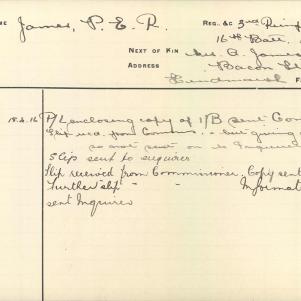 ME James, P. E. R. REG. &C 3rd Reinf
16th Batt.
NEXT OF KIN Mrs. A. James
ADDRESS Bacon St
Hindmarsh
18.2.16 P/L enclosing copy of I/B sent Com
slip rec. from Comm but giving
so not sent on to Inquirer
5 Clip sent to enquirer
Slip received from Commissioner. Copy sent
Further slip " " Informat
sent Inquirer